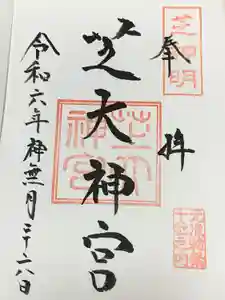 芝神明
奉拝
芝大神宮
芝大神宮
令和六年神無月二十六日